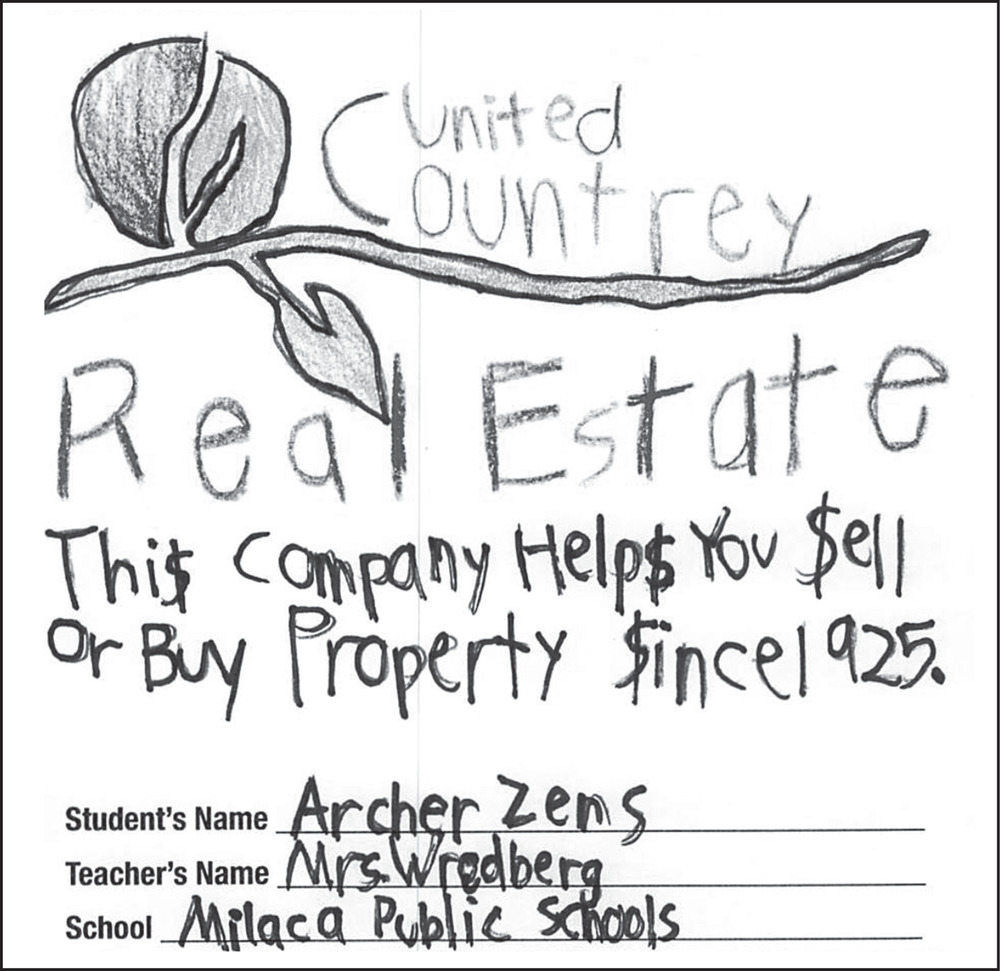 United
Countrey
Real Estate
Thi$ Company Help$ You $ell
Or Buy Property $ince 1925.
Student's Name Archer Zens
Teacher's Name Mrs. Wredberg
School Milaca Public Schools